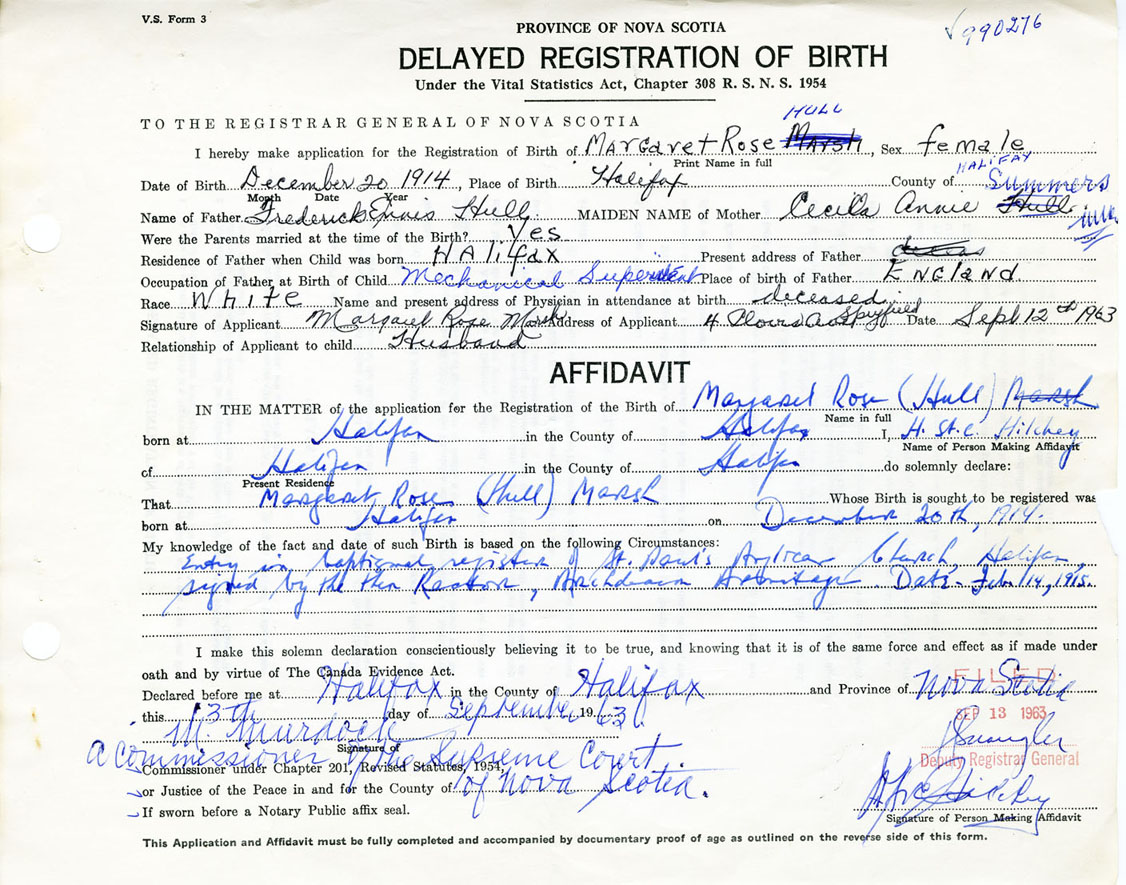 V.S. Form 3
PROVINCE OF NOVA SCOTIA
990276
DELAYED REGISTRATION OF BIRTH
Under the Vital Statistics Act, Chapter 308 R. S. N. S. 1954
HULL
TO THE REGISTRAR GENERAL OF NOVA SCOTIA
I hereby make application for the Registration of Birth of Margaret Rose Marsh, Sex female
Print Name in full
HALIFAX
Date of Birth December 20 1914, Place of Birth Halifax County of Summers
Month Date Year
Name of Father Frederick Ennis Hull MAIDEN NAME of Mother Cecila Annie Hull
Were the Parents married at the time of the Birth? Yes
Residence of Father when Child was born HAlifax Present address of Father
Occupation of Father at Birth of Child Mechanical Place of birth of Father ENGLAND
Race White Name and present address of Physician in attendance at birth deceased
Signature of Applicant Margaret Rose Marsh Address of Applicant 4 Spryfield Date Sept 12th 1963
Relationship of Applicant to child Husband
AFFIDAVIT
IN THE MATTER of the application for the Registration of the Birth of Margaret Rose (Hull) Marsh
Name in full
born at Halifax in the County of Halifax I, H. St. C. Hilchey
Name of Person Making Affidavit
of Halifax in the County of Halifax do solemnly declare:
Present Residence
That Margaret Rose (Hull) Marsh Whose Birth is sought to be registered was
born at Halifax on December 20th, 1914.
My knowledge of the fact and date of such Birth is based on the following Circumstances:
Entry in baptismal register of St. Paul's Anglican Church, Halifax,
signed by the then Rector, Archdeacon Armitage. Date - Feb. 14, 1915.
I make this solemn declaration conscientiously believing it to be true, and knowing that it is of the same force and effect as if made under
oath and by virtue of The Canada Evidence Act.
FILED
Declared before me at Halifax in the County of Halifax and Province of Nova Scotia
this 13th day of September 1963.
SEP 13 1963
M. Murdock
Signature of
a Commissioner of the Supreme Court
Deputy Registrar General
Commissioner under Chapter 201, Revised Statutes, 1954,
or Justice of the Peace in and for the County of of Nova Scotia.
If sworn before a Notary Public affix seal.
Signature of Person Making Affidavit
This Application and Affidavit must be fully completed and accompanied by documentary proof of age as outlined on the reverse side of this form.